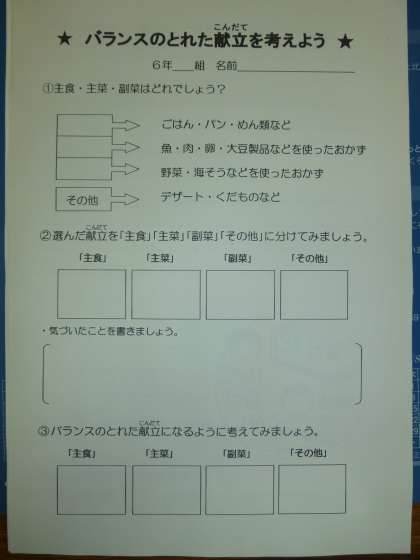 ★ バランスのとれた献立を考えよう ★
こんだて
６年___組 名前______________
①主食・主菜・副菜はどれでしょう？
ごはん・パン・めん類など
魚・肉・卵・大豆製品などを使ったおかず
野菜・海そうなどを使ったおかず
その他 デザート・くだものなど
こんだて
②選んだ献立を「主食」「主菜」「副菜」「その他」に分けてみましょう。
「主食」 「主菜」 「副菜」 「その他」
・気づいたことを書きましょう。
こんだて
③バランスのとれた献立になるように考えてみましょう。
「主食」 「主菜」 「副菜」 「その他」